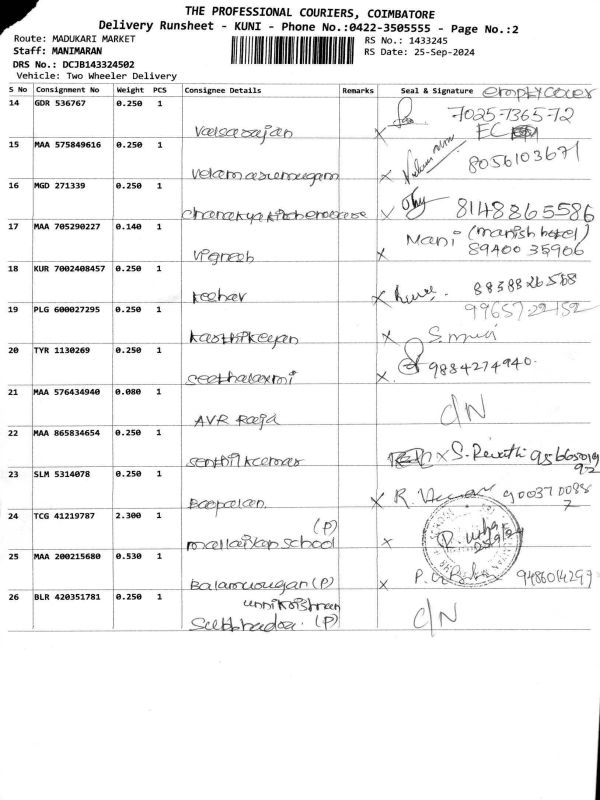 THE PROFESSIONAL COURIERS, COIMBATORE
Delivery Runsheet - KUNI - Phone No.:0422-3505555 - Page No.:2
Route: MADUKARI MARKET
RS No.: 1433245
Staff: MANIMARAN
RS Date: 25-Sep-2024
DRS No.: DCJB143324502
Vehicle: Two Wheeler Delivery
S No Consignment No Weight PCS Consignee Details Remarks Seal & Signature empty cover
14 GDR 536767 0.250 1 Valsarajan x 7025-7365-72
EC
15 MAA 575849616 0.250 1 Velamasurumugam x 8056103671
16 MGD 271339 0.250 1 x 8148865586
17 MAA 705290227 0.140 1 Vignesh x Mani (manish hotel)
89400 35906
18 KUR 7002408457 0.250 1 Keshav x 8838826568
19 PLG 600027295 0.250 1 Karthikeyan x 99657 22152
20 TYR 1130269 0.250 1 Seethalaxmi x 9884274940.
21 MAA 576434940 0.080 1 AVR Raja C/N
22 MAA 865834654 0.250 1 Senthilkumar x S. Revathi 9566501992
23 SLM 5314078 0.250 1 x R. 9003700887
24 TCG 41219787 2.300 1 (P)
school x P. Usha
25/9/24
25 MAA 200215680 0.530 1 Balamurugan (P) x P. Usha 9486014299
26 BLR 420351781 0.250 1 unnikrishnan
Subhadra. (P) C/N